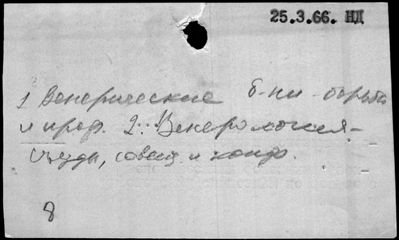 25.3.66. НД
1 Венерические б-ни - борьба
и проф. 2. Венерология -
съезды, совещ и конф.
8